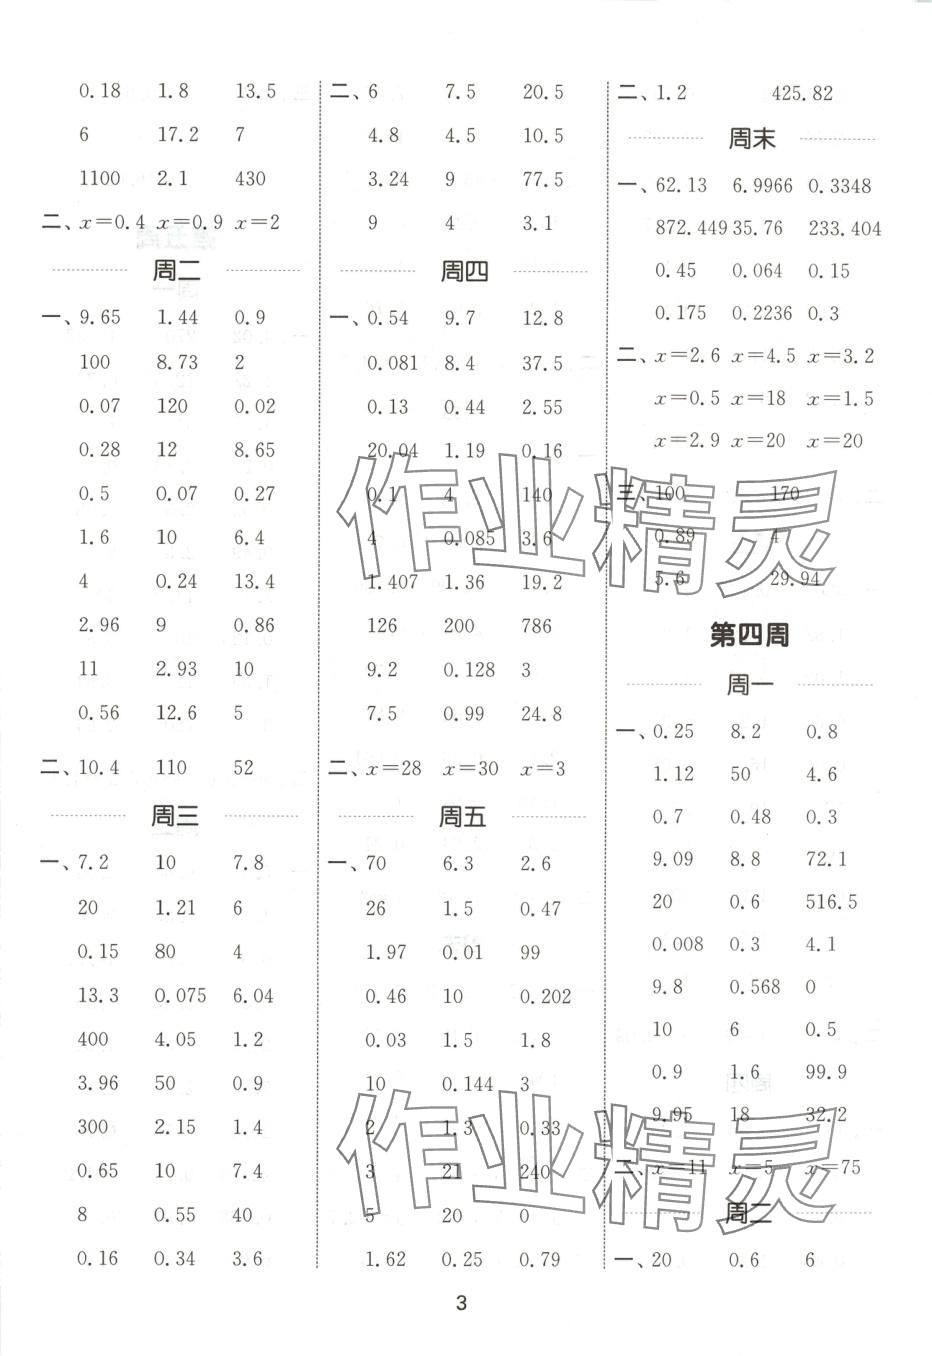 0.18 1.8 13.5
6 17.2 7
1100 2.1 430
二、x=0.4 x=0.9 x=2
周二
一、9.65 1.44 0.9
100 8.73 2
0.07 120 0.02
0.28 12 8.65
0.5 0.07 0.27
1.6 10 6.4
4 0.24 13.4
2.96 9 0.86
11 2.93 10
0.56 12.6 5
二、10.4 110 52
周三
一、7.2 10 7.8
20 1.21 6
0.15 80 4
13.3 0.075 6.04
400 4.05 1.2
3.96 50 0.9
300 2.15 1.4
0.65 10 7.4
8 0.55 40
0.16 0.34 3.6
二、6 7.5 20.5
4.8 4.5 10.5
3.24 9 77.5
9 4 3.1
周四
一、0.54 9.7 12.8
0.081 8.4 37.5
0.13 0.44 2.55
20.04 1.19 0.16
0.1 4 140
4 0.085 3.6
1.407 1.36 19.2
126 200 786
9.2 0.128 3
7.5 0.99 24.8
二、x=28 x=30 x=3
周五
一、70 6.3 2.6
26 1.5 0.47
1.97 0.01 99
0.46 10 0.202
0.03 1.5 1.8
10 0.144 3
2 1.3 0.33
3 21 240
5 20 0
1.62 0.25 0.79
二、1.2 425.82
周末
一、62.13 6.9966 0.3348
872.449 35.76 233.404
0.45 0.064 0.15
0.175 0.2236 0.3
二、x=2.6 x=4.5 x=3.2
x=0.5 x=18 x=1.5
x=2.9 x=20 x=20
三、100 170
0.89 4
5.6 29.94
第四周
周一
一、0.25 8.2 0.8
1.12 50 4.6
0.7 0.48 0.3
9.09 8.8 72.1
20 0.6 516.5
0.008 0.3 4.1
9.8 0.568 0
10 6 0.5
0.9 1.6 99.9
9.95 18 32.2
二、x=11 x=5 x=75
周二
一、20 0.6 6
作业精灵
作业精灵
3